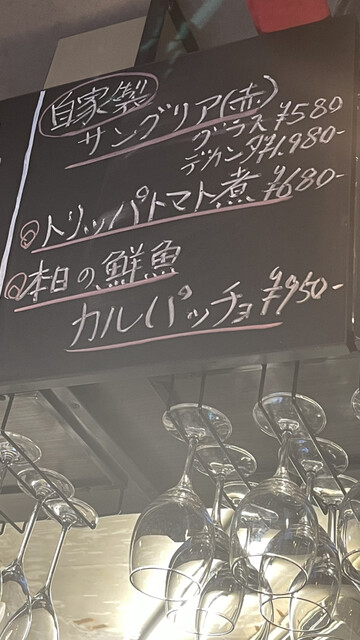 自家製
サングリア(赤)
グラス ¥580
デカンタ ¥1,980-
◎トリッパトマト煮 ¥680-
◎本日の鮮魚
カルパッチョ ¥950-